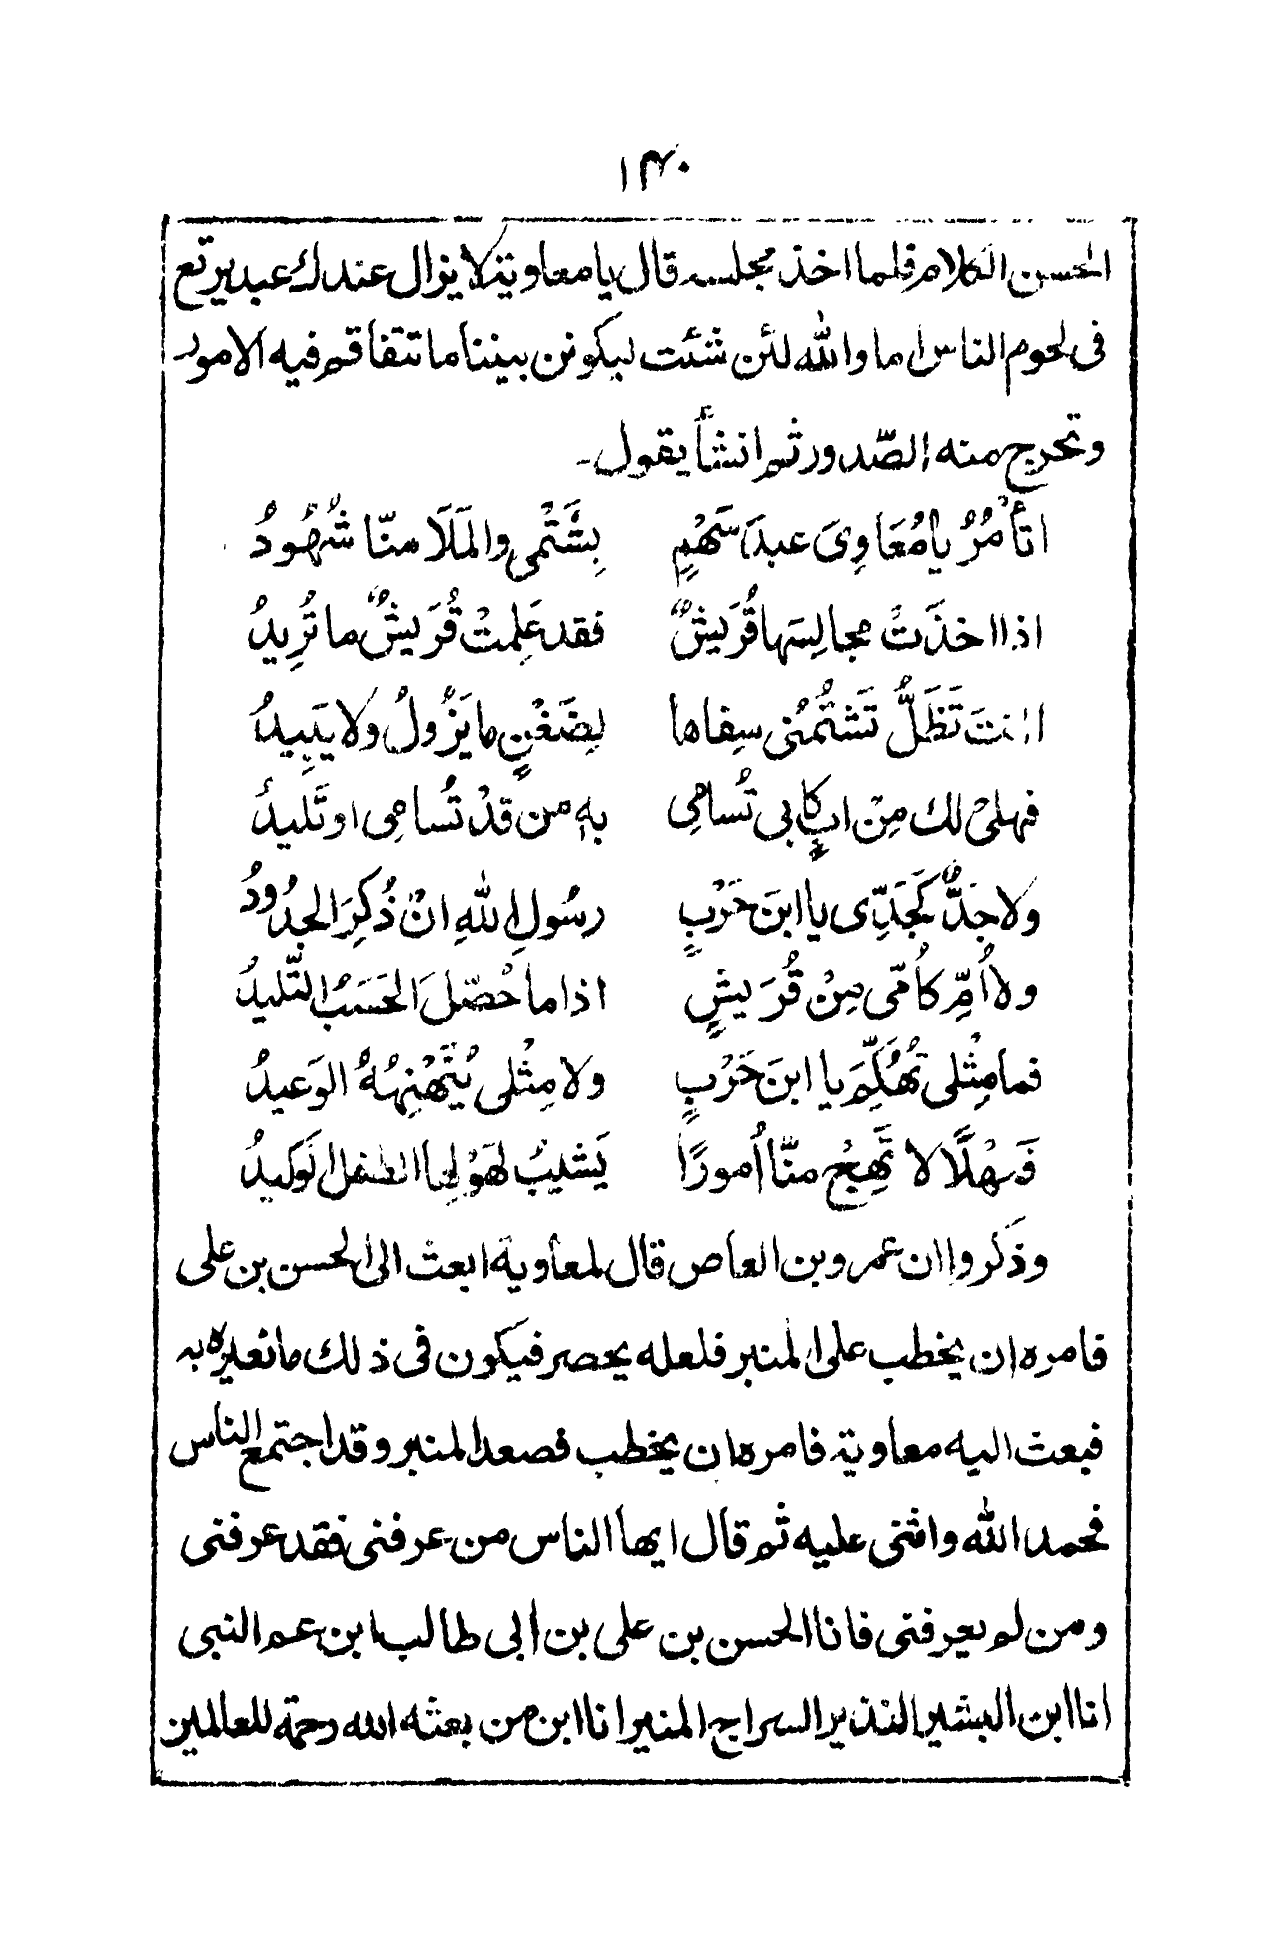 ۱۴۰
الحسن الكلام فلما اخذ مجلسه قال يا معاوية لا يزال عندك عبد يرتع
فى لحوم الناس اما والله لئن شئت ليكونن بيننا ما تتفاقم فيه الامور
وتحرج منه الصّدور ثم انشأ يقول۔
اتأمُرُ يا مُعَاوِىَ عبدَ سَهْمٍ بِشَتْمى والمَلَا منّا شُهُودُ
اذا اخذَتْ مجالِسَها قُرَيشٌ فقد عَلِمتْ قُرَيشٌ ما تُرِيدُ
اانتَ تَظَلُّ تَشتُمُنى سِفاها لِضَغْنٍ ما يَزُولُ ولا يَبِيدُ
فهل لك مِنْ ابٍ كابى تُسامِى بهِ من قدْ تُسامِى او تَليدُ
ولا جَدٌّ كَجَدِّى يا ابنَ حَرْبٍ رسُولِ اللهِ انْ ذُكِرَ الجدُودُ
ولا أُمٍّ كأُمّى مِنْ قُرَيشٍ اذا ما حُصّلَ الحَسَبُ التَّليدُ
فما مِثْلى تُهُكِّمَ يا ابنَ حَرْبٍ ولا مِثْلى يُنَهْنِهُهُ الوَعيدُ
فَمَهْلًا لا تَهِجْ منّا أُمورًا يَشيبُ لهَوْلِها الطفلُ الوَليدُ
وذَكروا ان عمرو بن العاص قال لمعاوية ابعث الى الحسن بن على
فامره ان يخطب على المنبر فلعله يحصر فيكون فى ذلك ما نعيره به
فبعث اليه معاوية فامره ان يخطب فصعد المنبر وقد اجتمع الناس
فحمد الله واثنى عليه ثم قال ايها الناس من عرفنى فقد عرفنى
ومن لم يعرفنى فانا الحسن بن على بن ابى طالب ابن عم النبى
انا ابن البشير النذير السراج المنير انا ابن من بعثه الله رحمة للعالمين